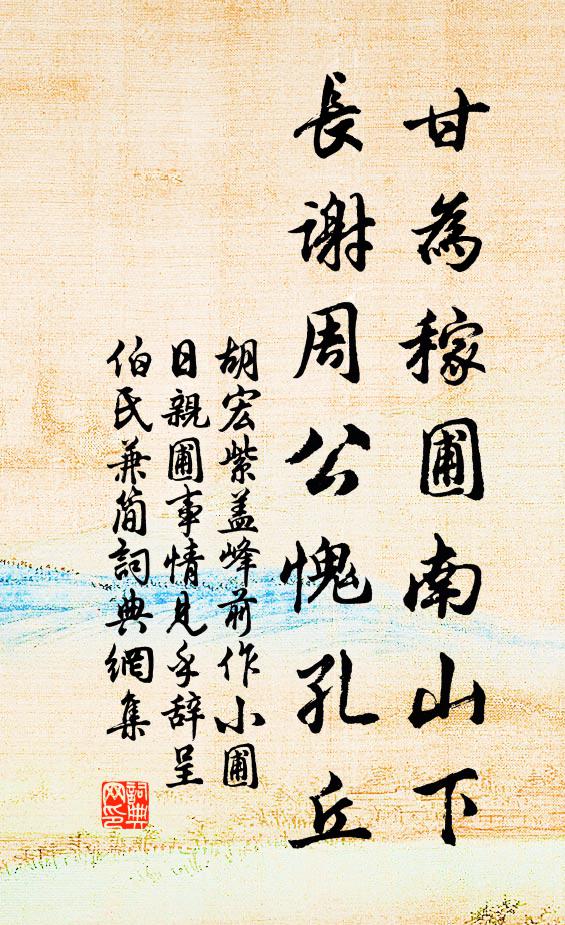 甘為稼圃南山下
長謝周公愧孔丘
胡宏紫盖峰前作小圃
日親圃事情見乎辞呈
伯氏兼简詞典網集
詞典網印